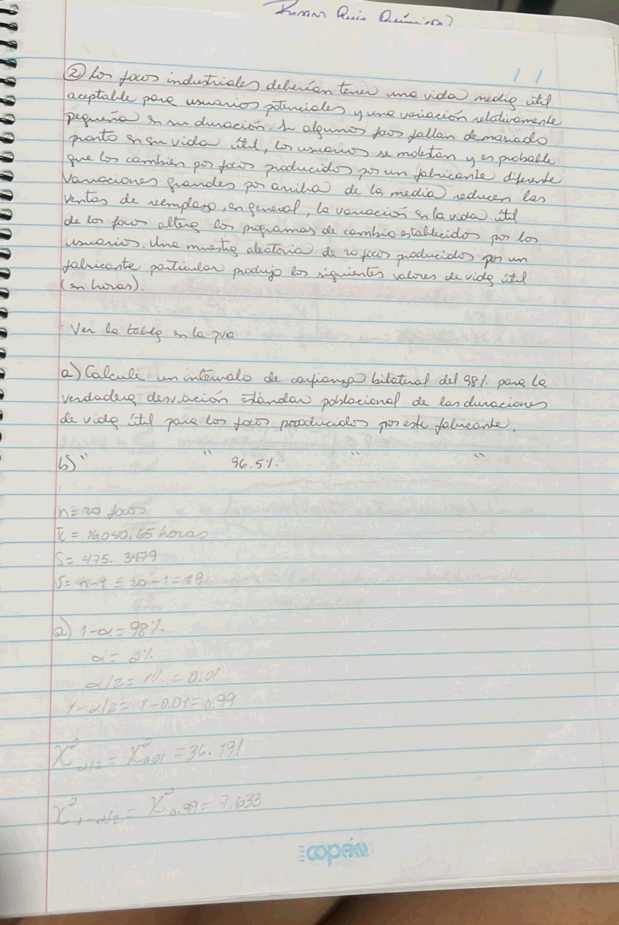 ② Los focos industriales deberían tener una vida media útil
aceptable para usuarios potenciales y una variación relativamente
pequeña en su duración. Si algunos focos fallan demasiado
pronto en su vida útil, los usuarios se molestan y es probable
que los cambien por focos producidos por un fabricante diferente
Variaciones grandes por arriba de la media reducen las
ventas de reemplazo, en general, la variación en la vida útil
de los focos altera los programas de cambio establecidos por los
usuarios. Una muestra aleatoria de 20 focos producidos por un
fabricante particular produjo los siguientes valores de vida útil
(en horas).
Ver la tabla en la
a) Calcule un intervalo de confianza bilateral del 98% para la
verdadera desviación estándar poblacional de las duraciones
de vida útil para los focos producidos por este fabricante.
b) " " 96.5% " "
n = 20 focos
S = 475.3479
= n-1 = 20-1 = 19
a) 1-α = 98%
α = 2%
α/2 = 1% = 0.01
1-α/2 = 1-0.01 = 0.99
X²α/2 = X²0.01 = 36.191
X²1-α/2 = X²0.99 = 7.633